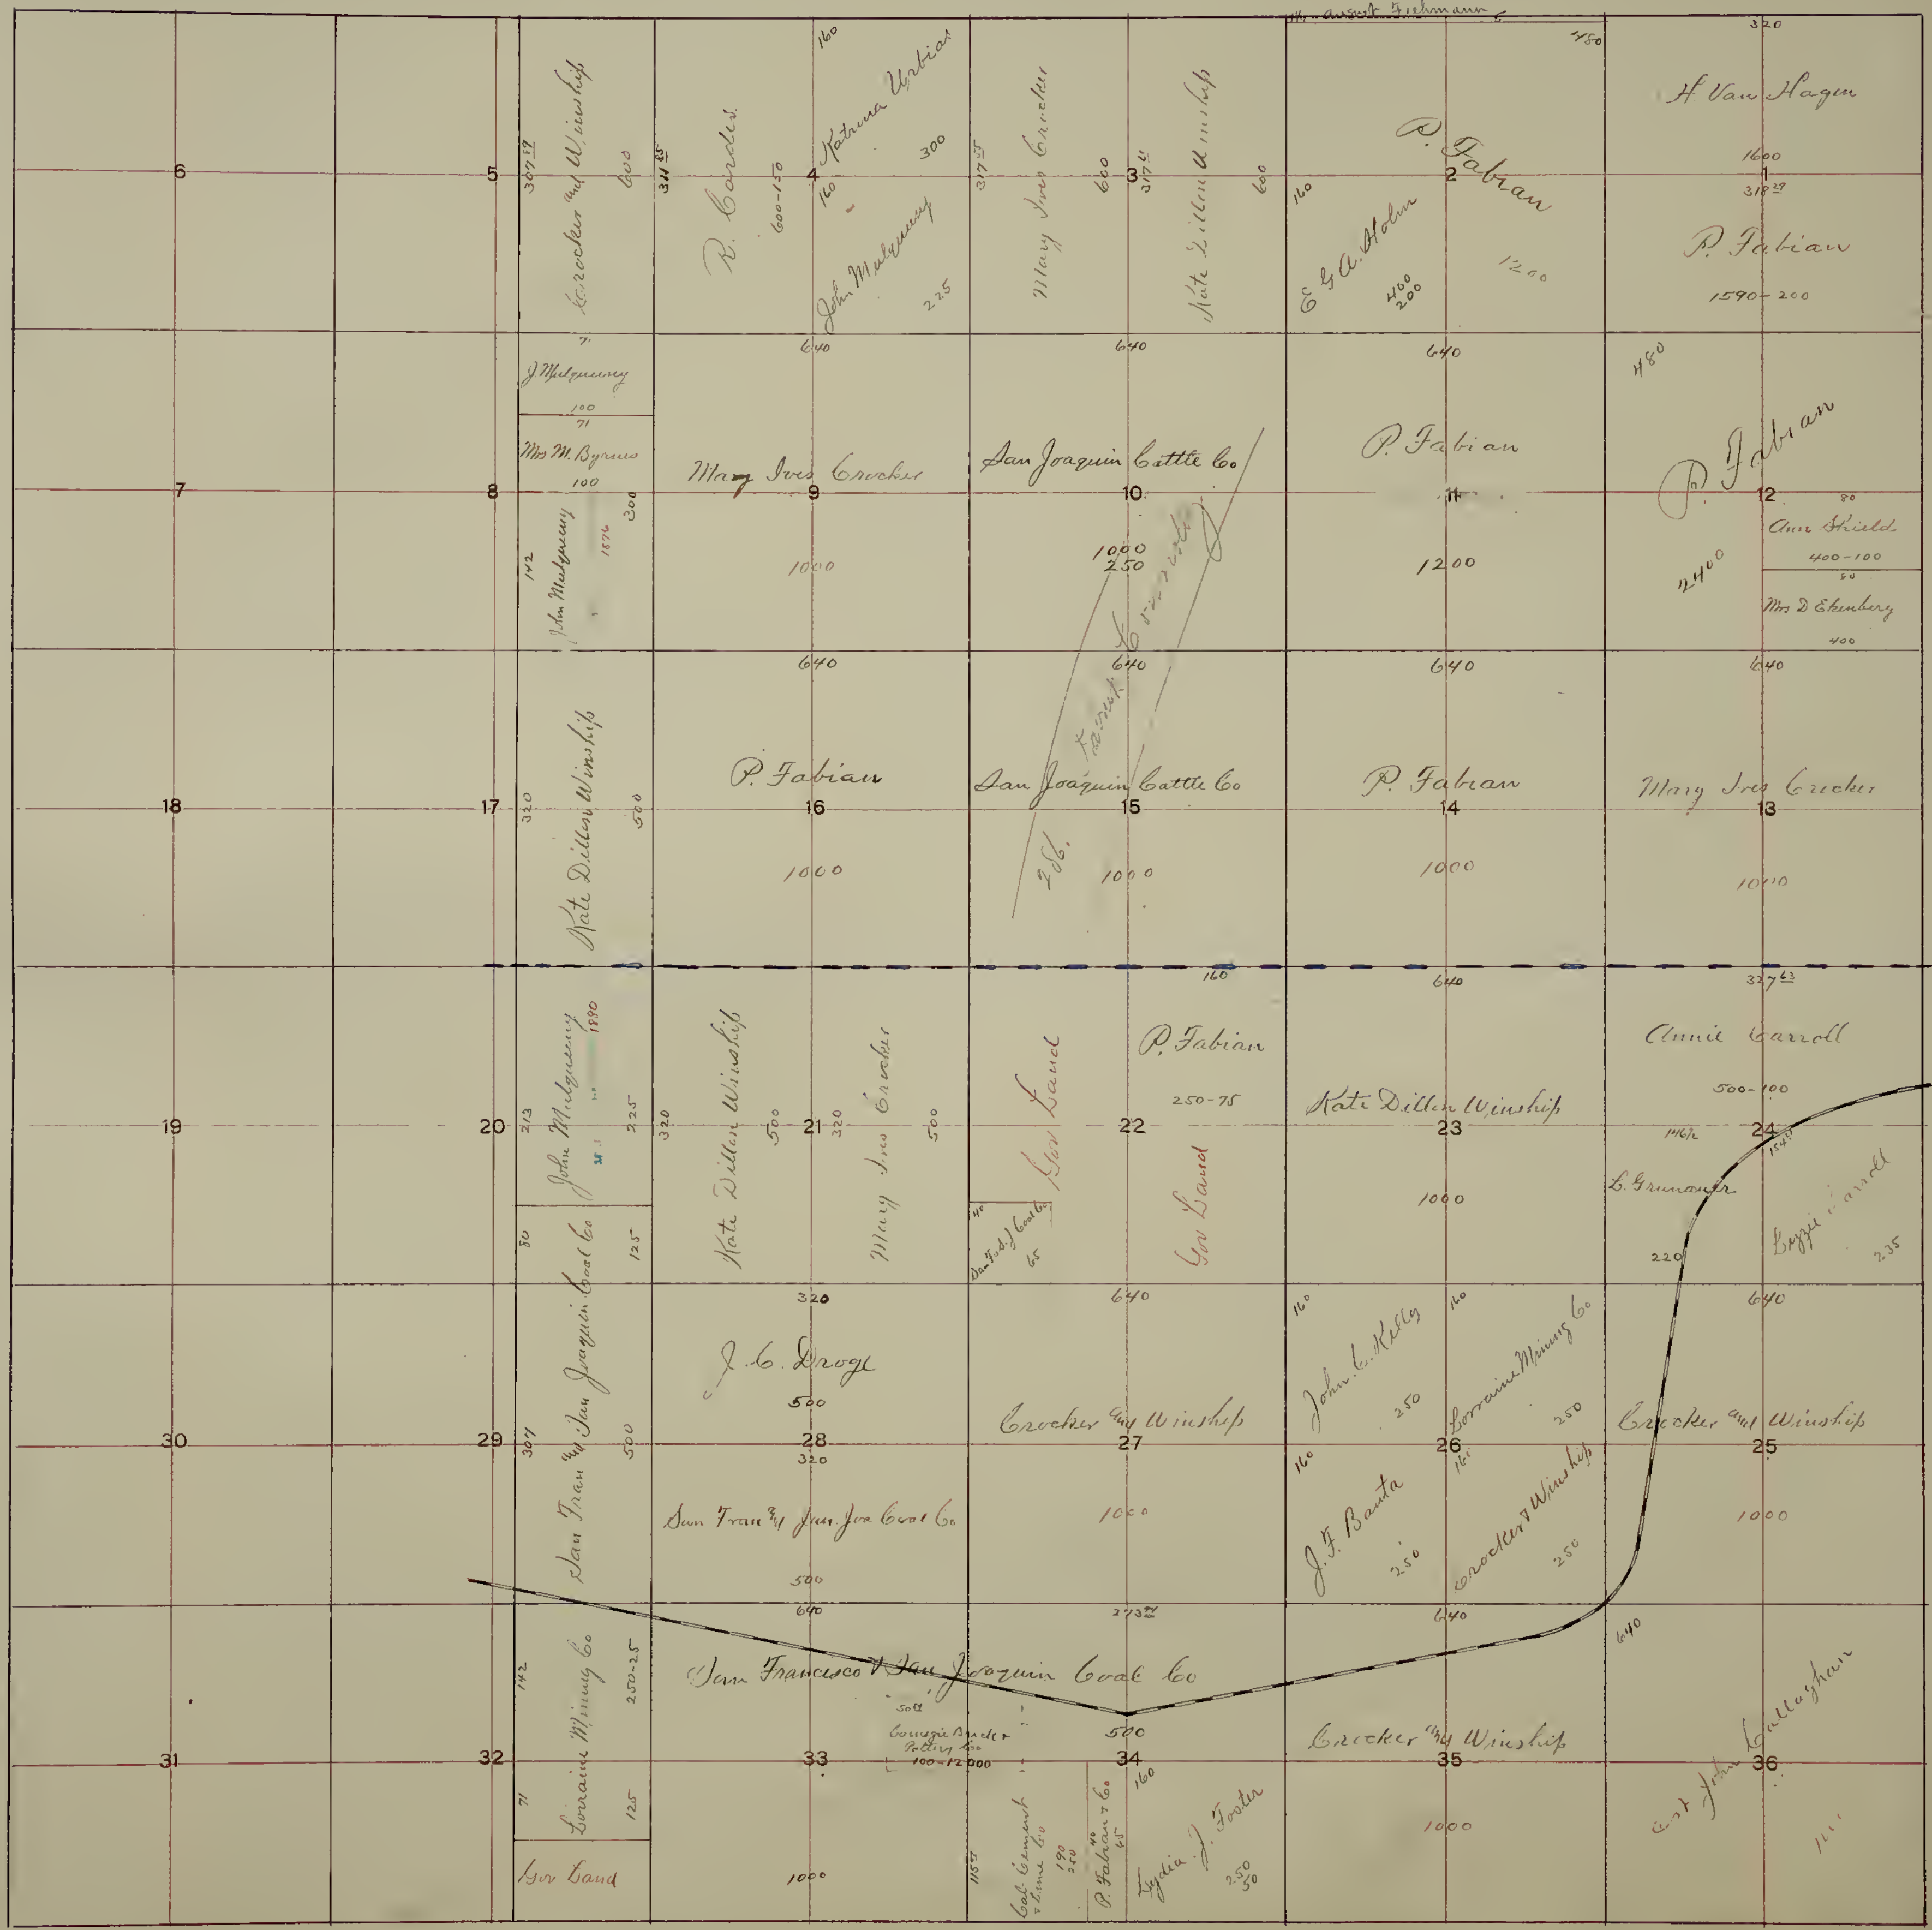 August Fiehmann
6
5
307 89
Crocker and Winship
600
311 85
R. Cordes
600-150
4
160
Katrina Urbias
300
160
John Mulqueeny
225
317 85
Mary Ives Crocker
600
3
317 61
Kate Dillon Winship
600
480
P. Fabian
2
1200
160
E G A. Holm
400
200
320
H Van Hagen
1600
1
318 29
P. Fabian
1590-200
7
8
71
J Mulqueeny
100
71
Mrs M. Byrnes
100
142
John Mulqueeny
1876
300
640
Mary Ives Crocker
9
1000
640
San Joaquin Cattle Co
10
1000
250
640
P. Fabian
11
1200
480
P. Fabian
12
2400
80
Ann Shield
400-100
80
Mrs D Ekenberg
400
18
17
320
Kate Dillon Winship
500
640
P. Fabian
16
1000
640
San Joaquin Cattle Co
15
286.
1000
640
P. Fabian
14
1000
640
Mary Ives Crocker
13
1000
19
20
213
John Mulqueeny
1880
225
80
125
320
Kate Dillon Winship
500
21
320
Mary Ives Crocker
500
Gov Land
160
P. Fabian
250-75
22
Gov Land
40
San F & S. J Coal Co
65
640
Kate Dillon Winship
23
1000
327 63
Annie Carroll
500-100
24
L. Grunauer
220
Lizzie Carroll
235
30
29
307
San Fran and San Joaquin Coal Co
500
320
J. C. Droge
500
28
320
San Fran and San. Joa Coal Co
500
640
Crocker and Winship
27
1000
160
John. C. Kelly
250
160
Lorraine Mining Co
250
26
160
J. F. Banta
250
160
Crocker & Winship
250
640
Crocker and Winship
25
1000
31
32
142
Lorraine Mining Co
250-25
71
125
Gov Land
640
San Francisco & San Joaquin Coal Co
Carnegie Brick &
Pottery Co
100-12000
33
1000
273
500
34
Cal. Cement
& Lime Co
190
250
40
P. Fabian & Co
65
160
Lydia J. Foster
250
50
640
Crocker and Winship
35
1000
640
Est John Callaghan
36